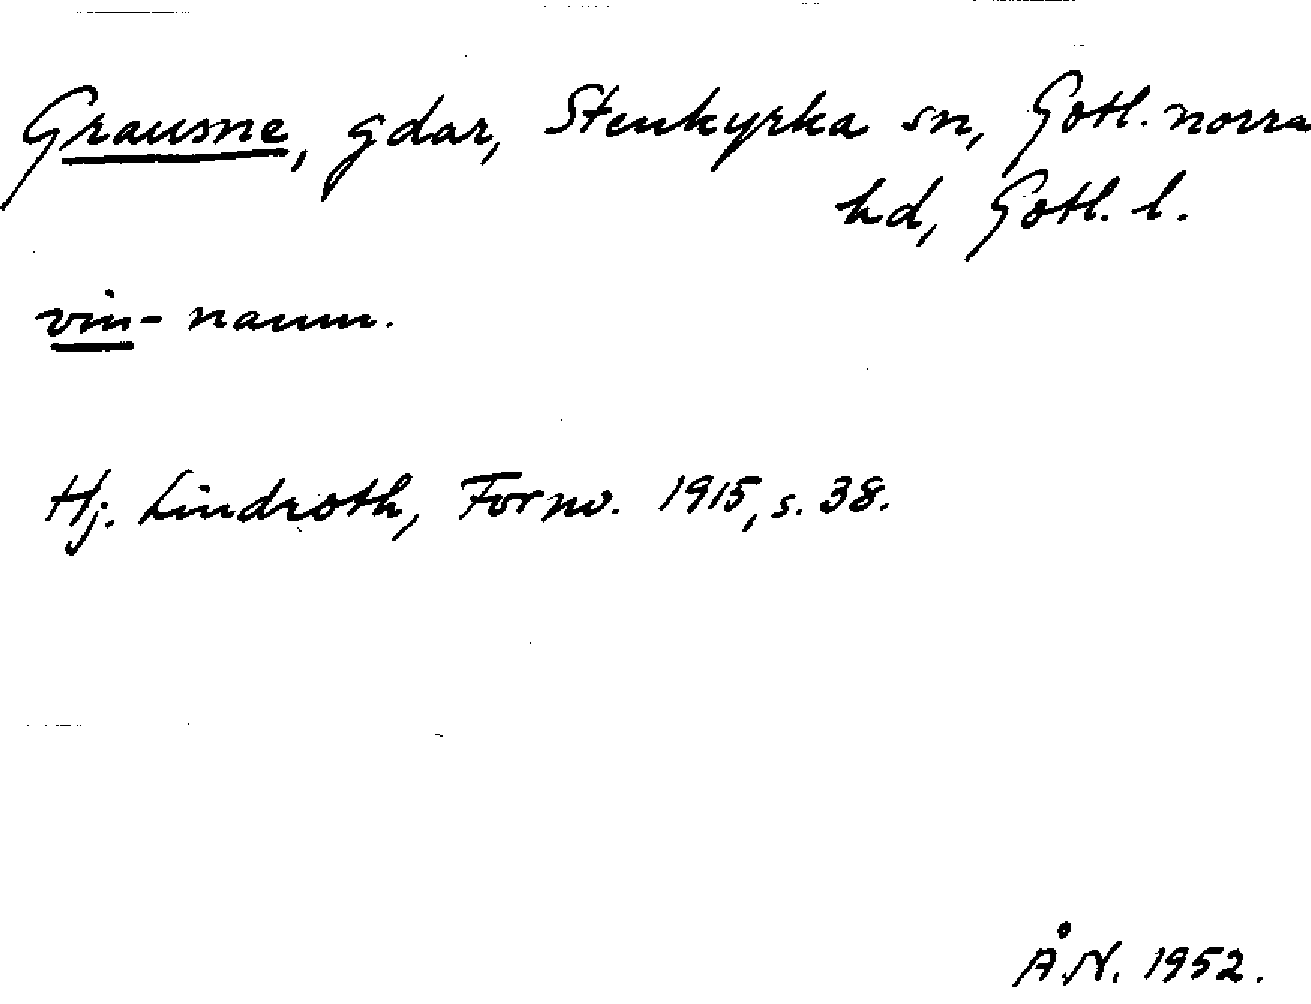 Grausne, gdar, Stenkyrka sn, Gotl. norra
hd, Gotl. l.
vin- namn.
Hj. Lindroth, Fornv. 1915, s. 38.
Å.N. 1952.